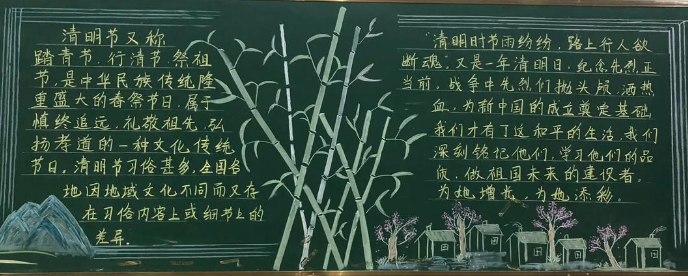 清明节又称
踏青节、行清节、祭祖
节,是中华民族传统隆
重盛大的春祭节日,属于
慎终追远、礼敬祖先、弘
扬孝道的一种文化传统
节日。清明节习俗甚多,全国各
地因地域文化不同而又存
在习俗内容上或细节上的
差异。
“清明时节雨纷纷,路上行人欲
断魂”,又是一年清明日,纪念先烈正
当前,战争中先烈们抛头颅、洒热
血,为新中国的成立奠定基础,
我们才有了这和平的生活,我们
深刻铭记他们,学习他们的品
质,做祖国未来的建设者,
为她增光,为她添彩。